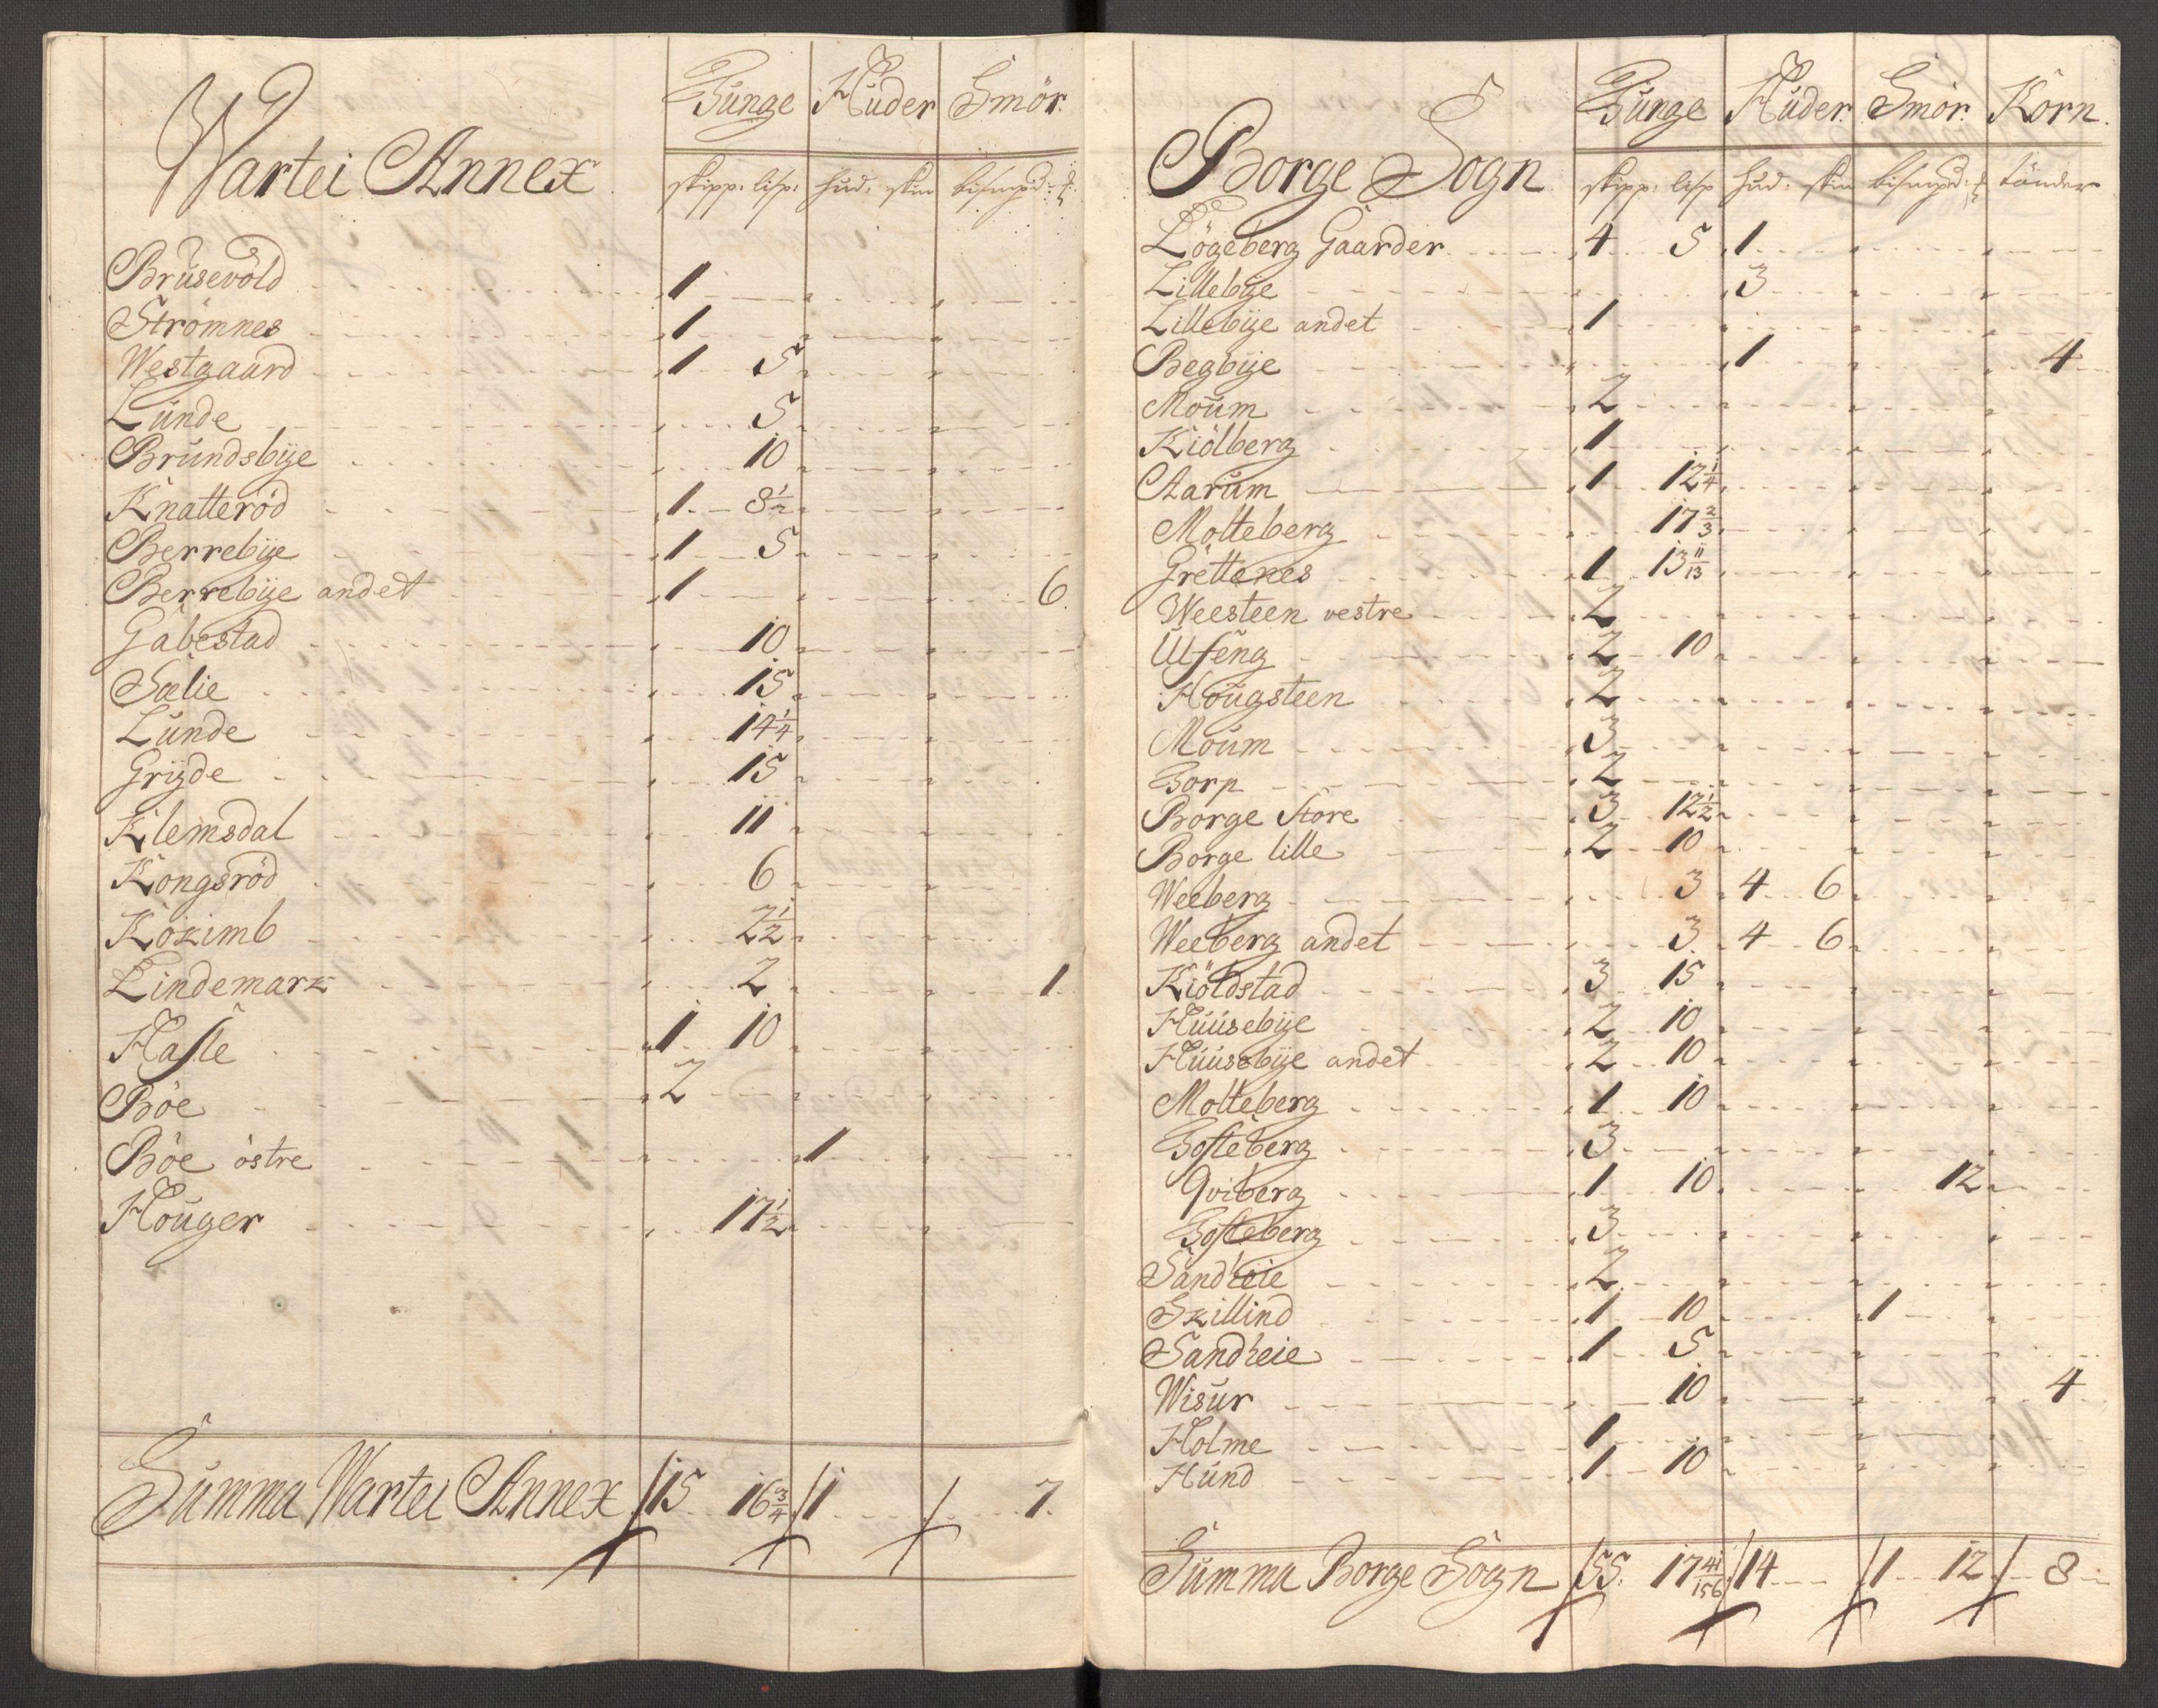 Wartei Annex
Tunge Huder Smör
skipp: lisp: hud: skin bismpd: ℔
Brusevold 1
Strömnes 1
Westgaard 1 5
Lunde 5
Brundsbÿe 10
Knatteröd 1 8½
Berrebÿe 1 5
Berrebÿe andet 1 6
Gabestad 10
Sælie 15
Lunde 14¼
Grijde 15
Klemsdal 11
Kongsröd 6
Kokimb 2½
Lindemark 2 1
Hasle 1 10
Böe 2
Böe östre 1
Houger 17½
Summa Wartei Annex 15 16¾ 1 7
Borge Sogn
Tunge Huder Smör Korn
skipp: lisp hud: skin bismpd: ℔ tönder
Lögeberg Gaarder 4 5 1
Lillebÿe 3
Lillebÿe andet 1
Begbÿe 1 4
Moum 2
Kiölberg 1
Aarum 1 12¼
Molteberg 17⅔
Grettenes 1 13 11/13
Weesteen vestre 2
Ulfeng 2 10
Hougsteen 2
Moum 3
Torp 2
Borge Store 3 12½
Borge lille 2 10
Weeberg 3 4 6
Weeberg andet 3 4 6
Kiöldstad 3 15
Huusebÿe 2 10
Huusebÿe andet 2 10
Molteberg 1 10
Tosteberg 3
Qviberg 1 10 12
Tosteberg 3
Sandheie 2
Skillind 1 10 1
Sandheie 1 5
Wisur 10 4
Holme 1
Hund 1 10
Summa Borge Sogn 55 17 41/156 14 1 12 8